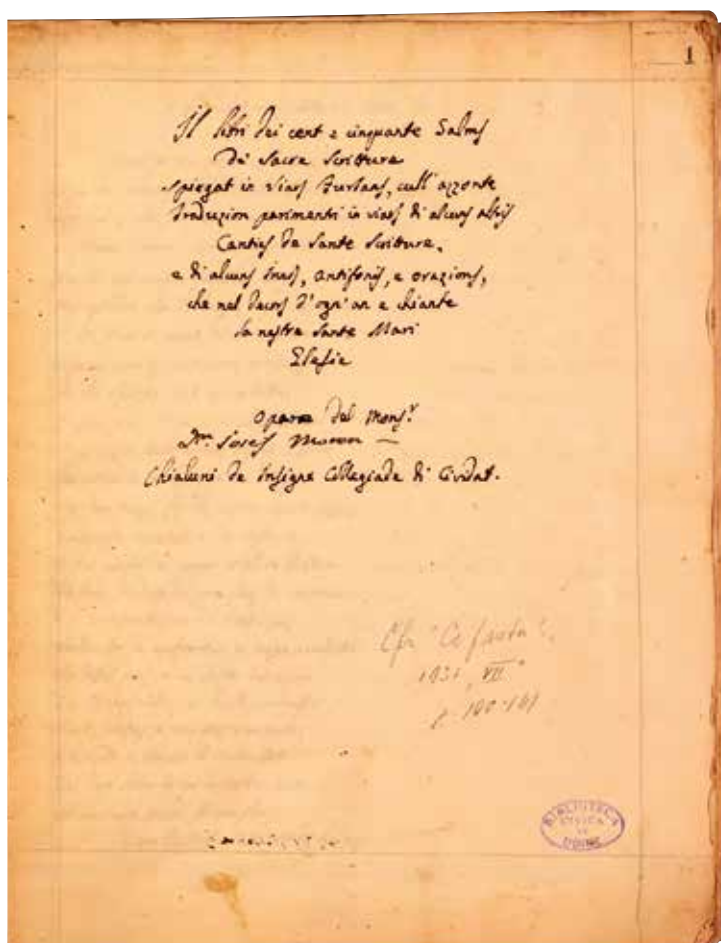 1
Il libri dei cent e cinquante Salms
De Sacre Scritture
spiegat in viars Furlans, cull' azzonte
Traduzion parimenti in viars di alcuns altris
Cantics da Sante Scritture,
e di alcuns Innos, Antifonis, e orazions,
che nel decors d'ogn'an e chiante
la nestre Sante Mari
Glesie
Opara del Mons.r
Josef
Chialuni de Insigne Collegiade di Cividat.
Cfr "Ce fastu?",
VII
BIBLIOTECA
CIVICA
UDINE